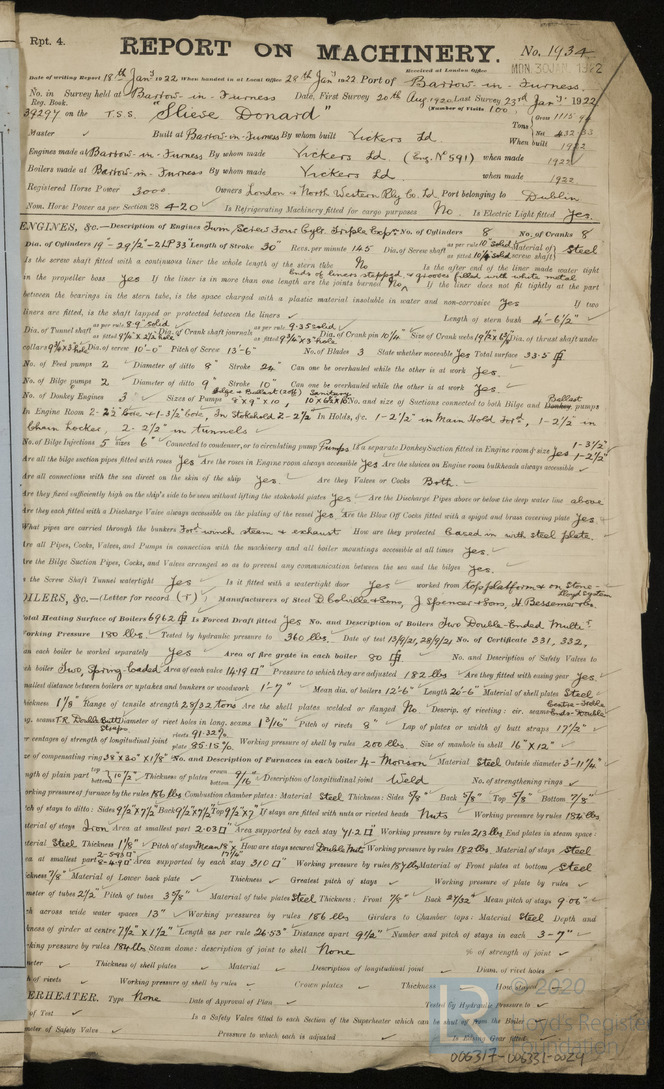 Rpt. 4.
REPORT ON MACHINERY.
No. 1934
Received at London Office
MON. 30 JAN 1922
Date of writing Report 18th Jany 1922 When handed in at Local Office 28th Jany 1922 Port of Barrow-in-Furness.
No. in Survey held at Barrow-in-Furness Date, First Survey 20th Aug 1920 Last Survey 23rd Jany. 1922
Reg. Book. (Number of Visits 100)
39297 on the T.S.S. "Slieve Donard" Tons Gross 1115
Net 432.33
Master ✓ Built at Barrow-in-Furness By whom built Vickers Ld When built 1922
Engines made at Barrow-in-Furness By whom made Vickers Ld. (Eng. No 591) when made 1922
Boilers made at Barrow-in-Furness By whom made Vickers Ld. when made 1922
Registered Horse Power 3000. Owners London & North Western Rly Co. Ld Port belonging to Dublin
Nom. Horse Power as per Section 28 420 Is Refrigerating Machinery fitted for cargo purposes No. Is Electric Light fitted Yes.
ENGINES, &c.—Description of Engines Twin Screw Four Cylr. Triple Expn No. of Cylinders 8 No. of Cranks 8
Dia. of Cylinders 19"-29½"-2LP 33" Length of Stroke 30" Revs. per minute 145 Dia. of Screw shaft as per rule 10" solid Material of Steel
as fitted screw shaft)
Is the screw shaft fitted with a continuous liner the whole length of the stern tube No Is the after end of the liner made water tight
ends of liners stepped & grooves filled with white metal
in the propeller boss Yes If the liner is in more than one length are the joints burned No If the liner does not fit tightly at the part
between the bearings in the stern tube, is the space charged with a plastic material insoluble in water and non-corrosive Yes If two
liners are fitted, is the shaft lapped or protected between the liners ✓ Length of stern bush 4'-6½"
Dia. of Tunnel shaft as per rule 8.9" solid Dia. of Crank shaft journals as per rule 9.35 solid Dia. of Crank pin 10¼" Size of Crank webs Dia. of thrust shaft under
as fitted 9¼" x 2½ hole as fitted 9¾" x 3" hole
collars 9¾" x 3" hole Dia. of screw 10'-0" Pitch of Screw 13'-6" No. of Blades 3 State whether moveable Yes Total surface 33.5
No. of Feed pumps 2 Diameter of ditto 8" Stroke 24" Can one be overhauled while the other is at work Yes.
No. of Bilge pumps 2 Diameter of ditto 9" Stroke 10" Can one be overhauled while the other is at work Yes.
Bilge & Ballast Sanitary Ballast
No. of Donkey Engines 3 Sizes of Pumps 8" x 9" x 10", No. and size of Suctions connected to both Bilge and Donkey pumps
In Engine Room 2-2½" bore & 1-3½" bore, In Stokehold 2-2½" In Holds, &c. 1-2½" in Main Hold Ford, 1-2½" in
Chain Locker, 2-2½" in tunnels
No. of Bilge Injections 5 sizes 6" Connected to condenser, or to circulating pump Pumps Is a separate Donkey Suction fitted in Engine room & size Yes 1-3½" 1-2½"
Are all the bilge suction pipes fitted with roses Yes Are the roses in Engine room always accessible Yes Are the sluices on Engine room bulkheads always accessible ✓
Are all connections with the sea direct on the skin of the ship Yes. Are they Valves or Cocks Both.
Are they fixed sufficiently high on the ship's side to be seen without lifting the stokehold plates Yes Are the Discharge Pipes above or below the deep water line above
Are they each fitted with a Discharge Valve always accessible on the plating of the vessel Yes Are the Blow Off Cocks fitted with a spigot and brass covering plate Yes
What pipes are carried through the bunkers Ford winch steam & exhaust How are they protected Cased in with steel plate.
Are all Pipes, Cocks, Valves, and Pumps in connection with the machinery and all boiler mountings accessible at all times Yes.
Are the Bilge Suction Pipes, Cocks, and Valves arranged so as to prevent any communication between the sea and the bilges Yes.
Is the Screw Shaft Tunnel watertight Yes Is it fitted with a watertight door Yes worked from top platform & on Stone-Lloyd System
OILERS, &c.—(Letter for record (T)) Manufacturers of Steel D. Colville & Sons, J. Spencer & Sons, H. Bessemer & Co.
otal Heating Surface of Boilers 6962 Is Forced Draft fitted Yes No. and Description of Boilers Two Double-Ended Multi
orking Pressure 180 lbs. Tested by hydraulic pressure to 360 lbs. Date of test 13/9/21, 28/9/21 No. of Certificate 331, 332,
an each boiler be worked separately Yes Area of fire grate in each boiler 80 No. and Description of Safety Valves to
ch boiler Two, Spring-loaded Area of each valve 14.19 □" Pressure to which they are adjusted 182 lbs Are they fitted with easing gear Yes.
mallest distance between boilers or uptakes and bunkers or woodwork 1'-7" Mean dia. of boilers 12'-6" Length 20'-6" Material of shell plates Steel
hickness 1⅛" Range of tensile strength 28/32 tons Are the shell plates welded or flanged No Descrip. of riveting: cir. seams Centre-Treble Ends-Double
g. seams T.R. Double Butt Straps Diameter of rivet holes in long. seams 1 3/16" Pitch of rivets 8" Lap of plates or width of butt straps 17½"
er centages of strength of longitudinal joint rivets 91.32% plate 85.15% Working pressure of shell by rules 200 lbs. Size of manhole in shell 16" x 12"
ze of compensating ring No. and Description of Furnaces in each boiler 4- Morison Material Steel Outside diameter 3'-11¼"
ngth of plain part top bottom Thickness of plates crown bottom 9/16" Description of longitudinal joint Weld No. of strengthening rings ✓
rking pressure of furnace by the rules 186 lbs Combustion chamber plates: Material Steel Thickness: Sides ⅝" Back ⅝" Top ⅝" Bottom ⅞"
tch of stays to ditto: Sides 9½" x 7½" Back 9½" x 7½" Top 9½" x 7" If stays are fitted with nuts or riveted heads Nuts Working pressure by rules 184 lbs
terial of stays Iron Area at smallest part 2.03 □" Area supported by each stay 71.2 □" Working pressure by rules 213 lbs End plates in steam space:
terial Steel Thickness 1⅛" Pitch of stays How are stays secured Double Nuts Working pressure by rules 182 lbs. Material of stays Steel
ea at smallest part Area supported by each stay 310 □" Working pressure by rules 187 lbs Material of Front plates at bottom Steel
ickness ⅞" Material of Lower back plate ✓ Thickness ✓ Greatest pitch of stays ✓ Working pressure of plate by rules ✓
meter of tubes 2½" Pitch of tubes 3⅝" Material of tube plates Steel Thickness: Front ⅞" Back 27/32" Mean pitch of stays 9.06"
ch across wide water spaces 13" Working pressures by rules 186 lbs Girders to Chamber tops: Material Steel Depth and
kness of girder at centre 7½" x 1½" Length as per rule 26.53" Distance apart 9½" Number and pitch of stays in each 3-7"
rking pressure by rules 184 lbs Steam dome: description of joint to shell None % of strength of joint ✓
meter ✓ Thickness of shell plates ✓ Material ✓ Description of longitudinal joint ✓ Diam. of rivet holes ✓
h of rivets ✓ Working pressure of shell by rules ✓ Crown plates ✓ Thickness ✓ How stayed
ERHEATER. Type None Date of Approval of Plan Tested by Hydraulic Pressure to
of Test ✓ Is a Safety Valve fitted to each Section of the Superheater which can be shut off from the Boiler
meter of Safety Valve ✓ Pressure to which each is adjusted ✓ Is Easing Gear fitted
© 2020
Lloyd's Register
Foundation
006317-006331-0024